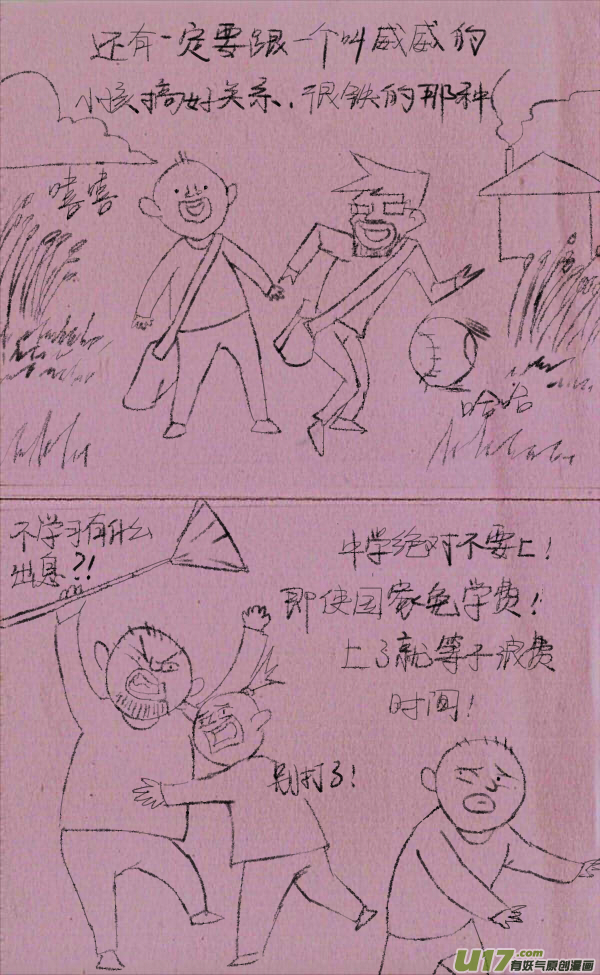 还有一定要跟一个叫威威的
小孩搞好关系,很铁的那种
嘻嘻
哈哈
不学习有什么
出息?!
中学绝对不要上!
即使国家免学费!
上了就等于浪费
时间!
别打了!
U17.com
有妖气原创漫画